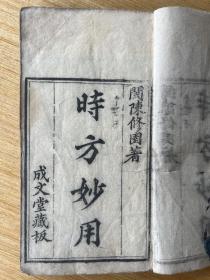 閩陳修園著
時方妙用
成文堂藏板